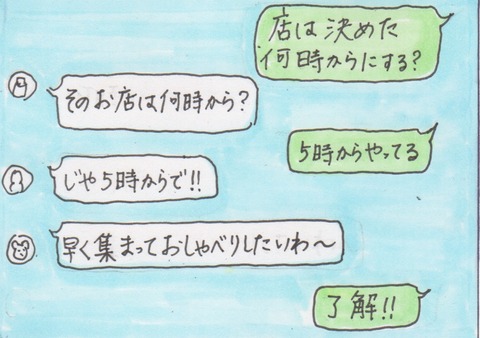 店は決めた
何時からにする?
そのお店は何時から?
5時からやってる
じゃ5時からで!!
早く集まっておしゃべりしたいわ〜
了解!!